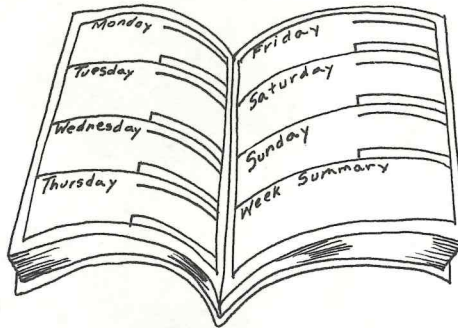 Monday
Tuesday
Wednesday
Thursday
Friday
Saturday
Sunday
Week Summary